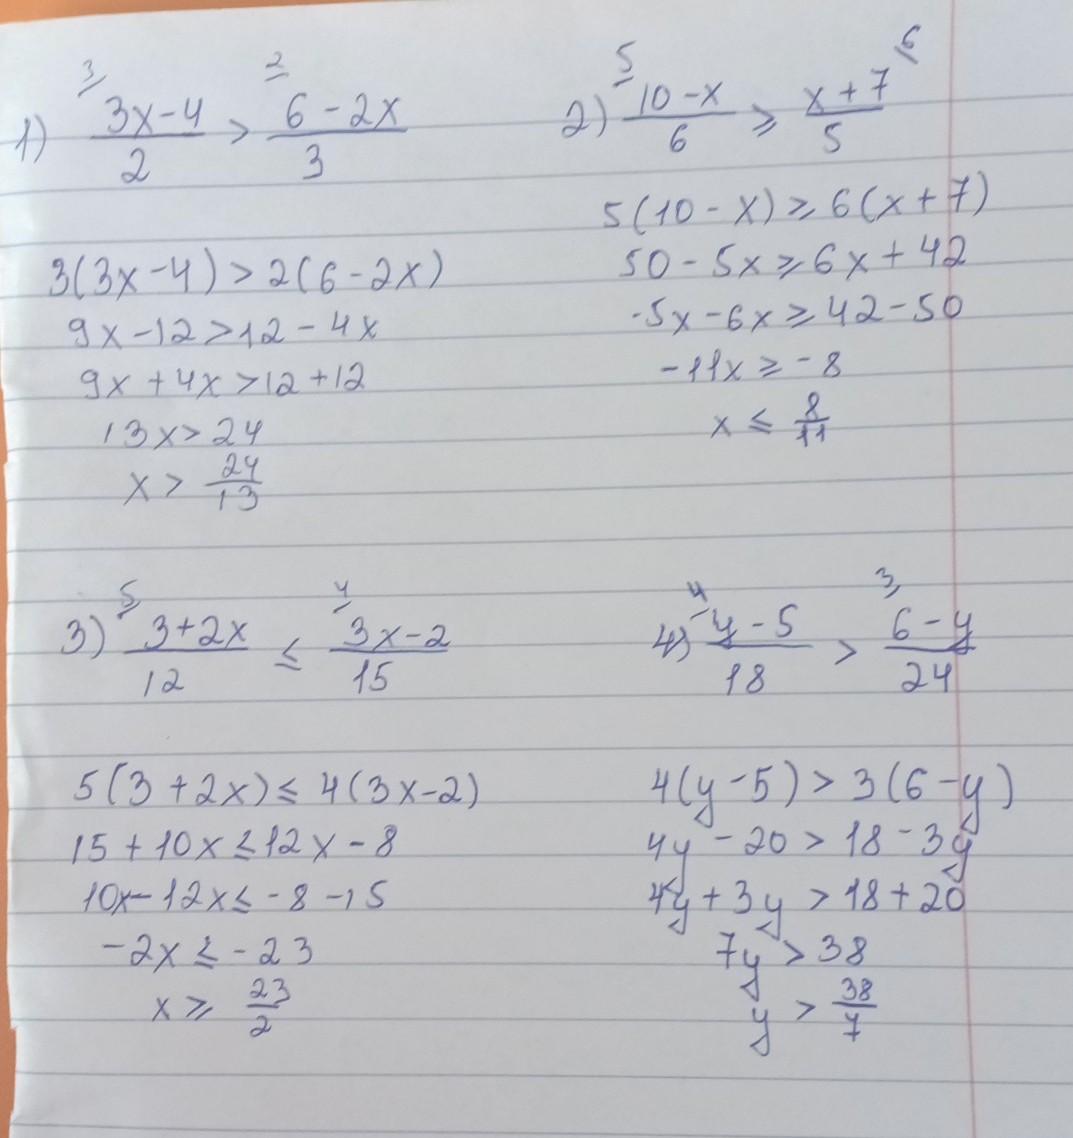 1) 3/ (3x-4)/2 > 2/ (6-2x)/3
3(3x-4)>2(6-2x)
9x-12>12-4x
9x+4x>12+12
13x>24
x> 24/13
2) 5/ (10-x)/6 ≥ (x+7)/5 6/
5(10-x)≥6(x+7)
50-5x≥6x+42
-5x-6x≥42-50
-11x≥-8
x≤ 8/11
3) 5/ (3+2x)/12 ≤ 4/ (3x-2)/15
5(3+2x)≤4(3x-2)
15+10x≤12x-8
10x-12x≤-8-15
-2x≤-23
x≥ 23/2
4) 4/ (y-5)/18 > 3/ (6-y)/24
4(y-5)>3(6-y)
4y-20>18-3y
4y+3y>18+20
7y>38
y> 38/7